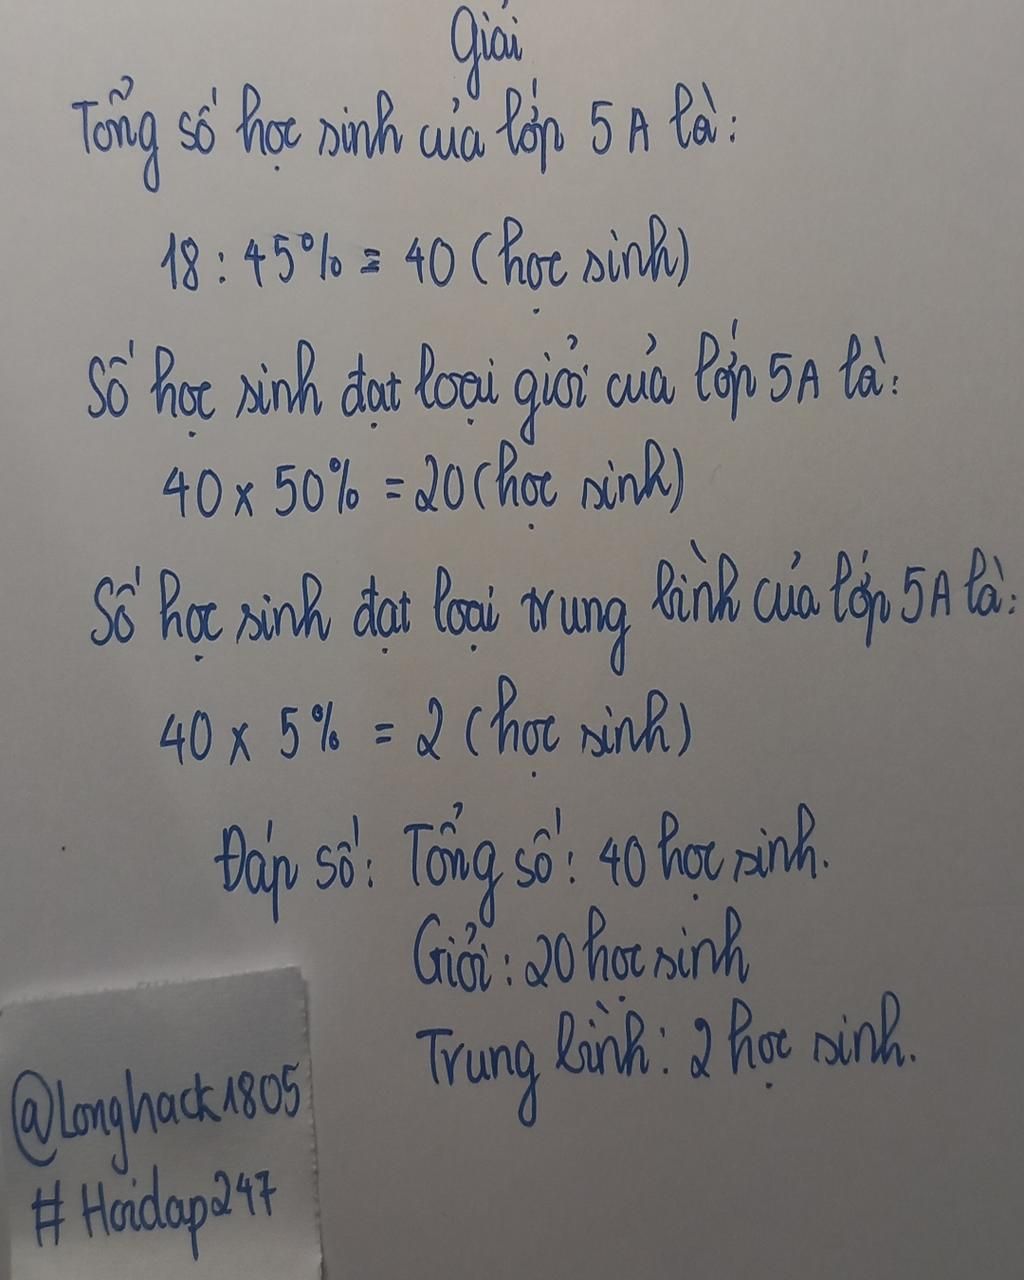 Giải
Tổng số học sinh của lớp 5A là:
18 : 45% = 40 (học sinh)
Số học sinh đạt loại giỏi của lớp 5A là:
40 x 50% = 20 (học sinh)
Số học sinh đạt loại trung bình của lớp 5A là:
40 x 5% = 2 (học sinh)
Đáp số: Tổng số: 40 học sinh.
Giỏi: 20 học sinh
Trung bình: 2 học sinh.
@Longhack1805
# Hoidap247